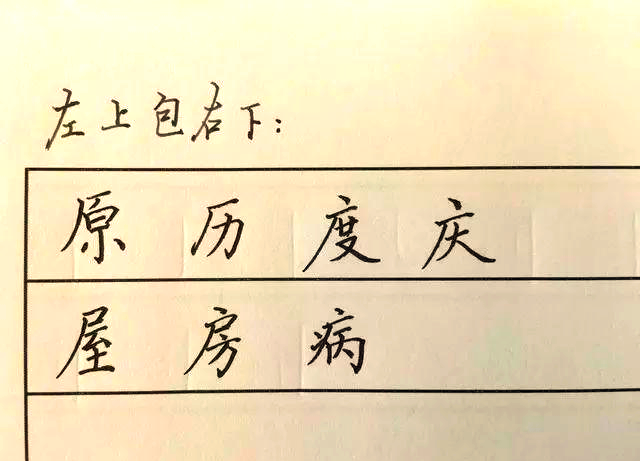 左上包右下：
原历度庆
屋房病